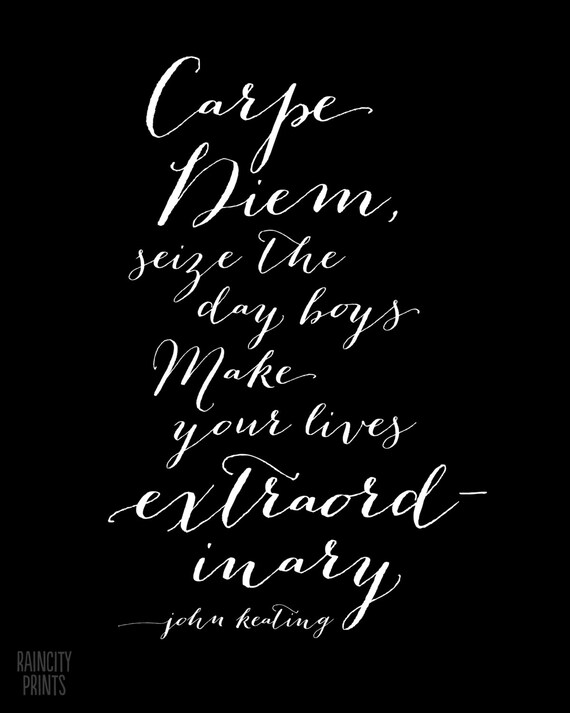 Carpe
Diem,
seize the
day boys
Make
your lives
extraord-
inary
—john keating
RAINCITY
PRINTS